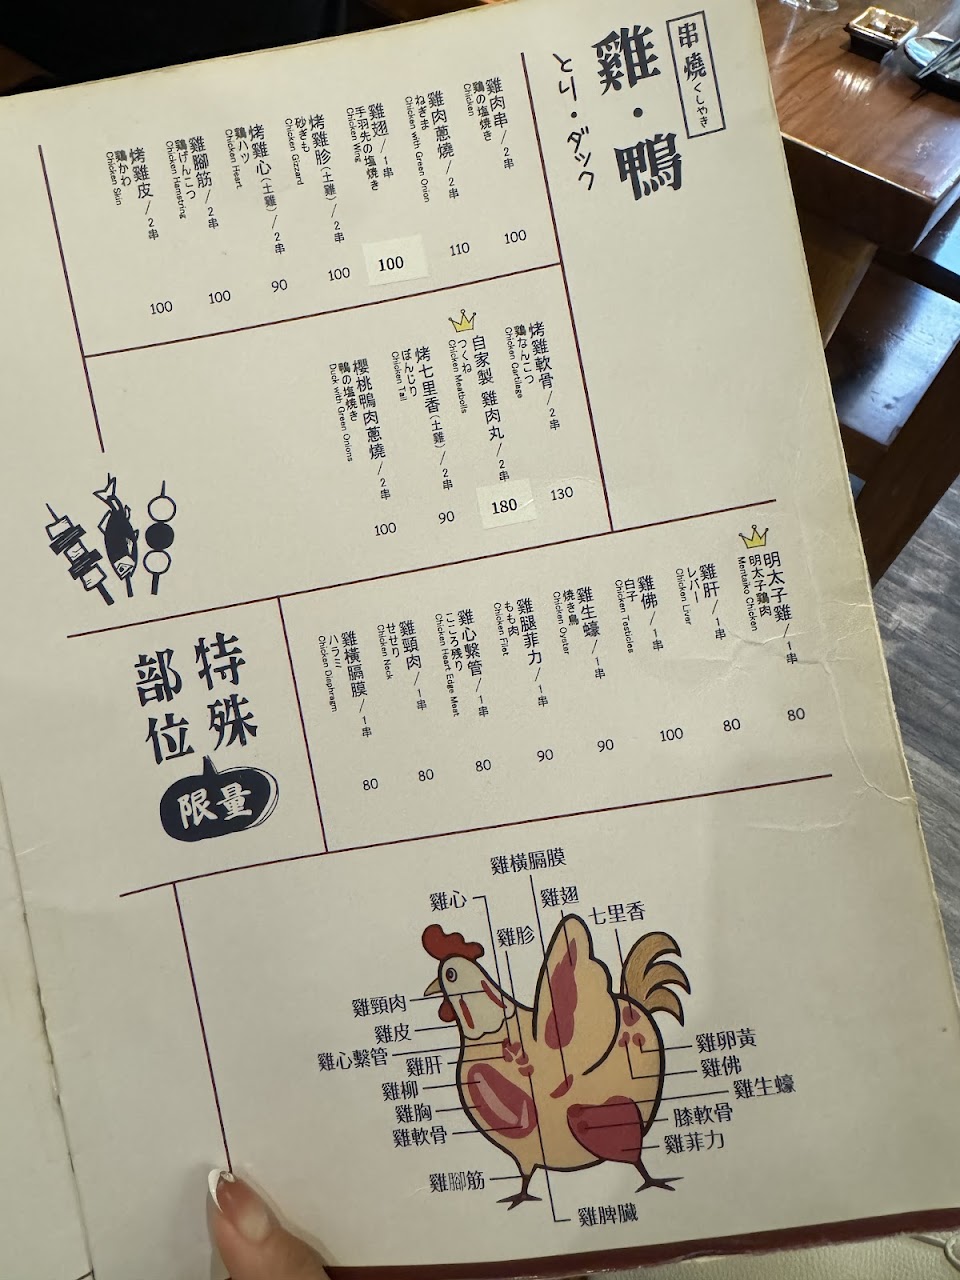 串燒くしやき
雞・鴨
とり・ダック
雞肉串/2串
鶏の塩焼き
Chicken
100
雞肉蔥燒/2串
ねぎま
Chicken with Green Onion
110
雞翅/1串
手羽先の塩焼き
Chicken Wing
100
烤雞胗(土雞)/2串
砂ぎも
Chicken Gizzard
100
烤雞心(土雞)/2串
鶏ハツ
Chicken Heart
90
雞腳筋/2串
鶏げんこつ
Chicken Hamstring
100
烤雞皮/2串
鶏かわ
Chicken Skin
100
烤雞軟骨/2串
鶏なんこつ
Chicken Cartilage
130
自家製 雞肉丸/2串
つくね
Chicken Meatballs
180
烤七里香(土雞)/2串
ぼんじり
Chicken Tail
90
櫻桃鴨肉蔥燒/2串
鴨の塩焼き
Duck with Green Onions
100
特殊
部位
限量
明太子雞/1串
明太子鶏肉
Mentaiko Chicken
80
雞肝/1串
レバー
Chicken Liver
80
雞佛/1串
白子
Chicken Testicles
100
雞生蠔/1串
焼き鳥
Chicken Oyster
90
雞腿菲力/1串
もも肉
Chicken Filet
90
雞心繫管/1串
こころ残り
Chicken Heart Edge Meat
80
雞頸肉/1串
せせり
Chicken Neck
80
雞橫膈膜/1串
ハラミ
Chicken Diaphragm
80
雞橫膈膜
雞心
雞翅
七里香
雞胗
雞頸肉
雞皮
雞心繫管
雞肝
雞柳
雞胸
雞軟骨
雞腳筋
雞卵黃
雞佛
雞生蠔
膝軟骨
雞菲力
雞脾臟